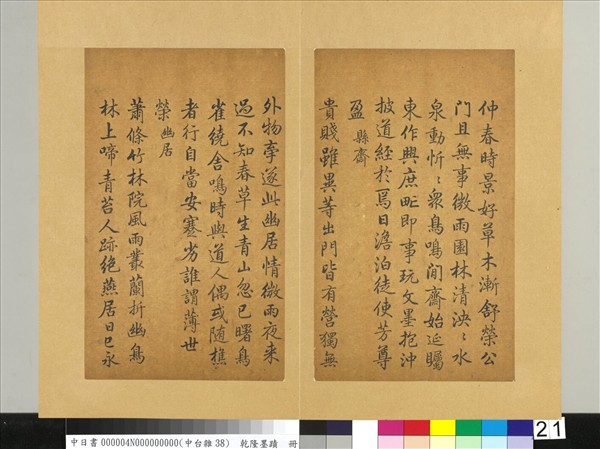 仲春時景好草木漸舒榮公
門且無事微雨園林清泱〻水
泉動忻〻衆鳥鳴閒齋始延矚
東作興庶甿即事玩文墨抱沖
披道經於焉日澹泊徒使芳尊
盈 縣齋
貴賤雖異等出門皆有營獨無
外物牽遂此幽居情微雨夜来
過不知春草生青山忽已曙鳥
雀繞舍鳴時與道人偶或随樵
者行自當安蹇劣誰謂薄世
榮 幽居
蕭條竹林院風雨叢蘭折幽鳥
林上啼青苔人跡絕燕居日已永
中日書 000004N000000000(中台雜 38) 乾隆墨蹟 冊
21